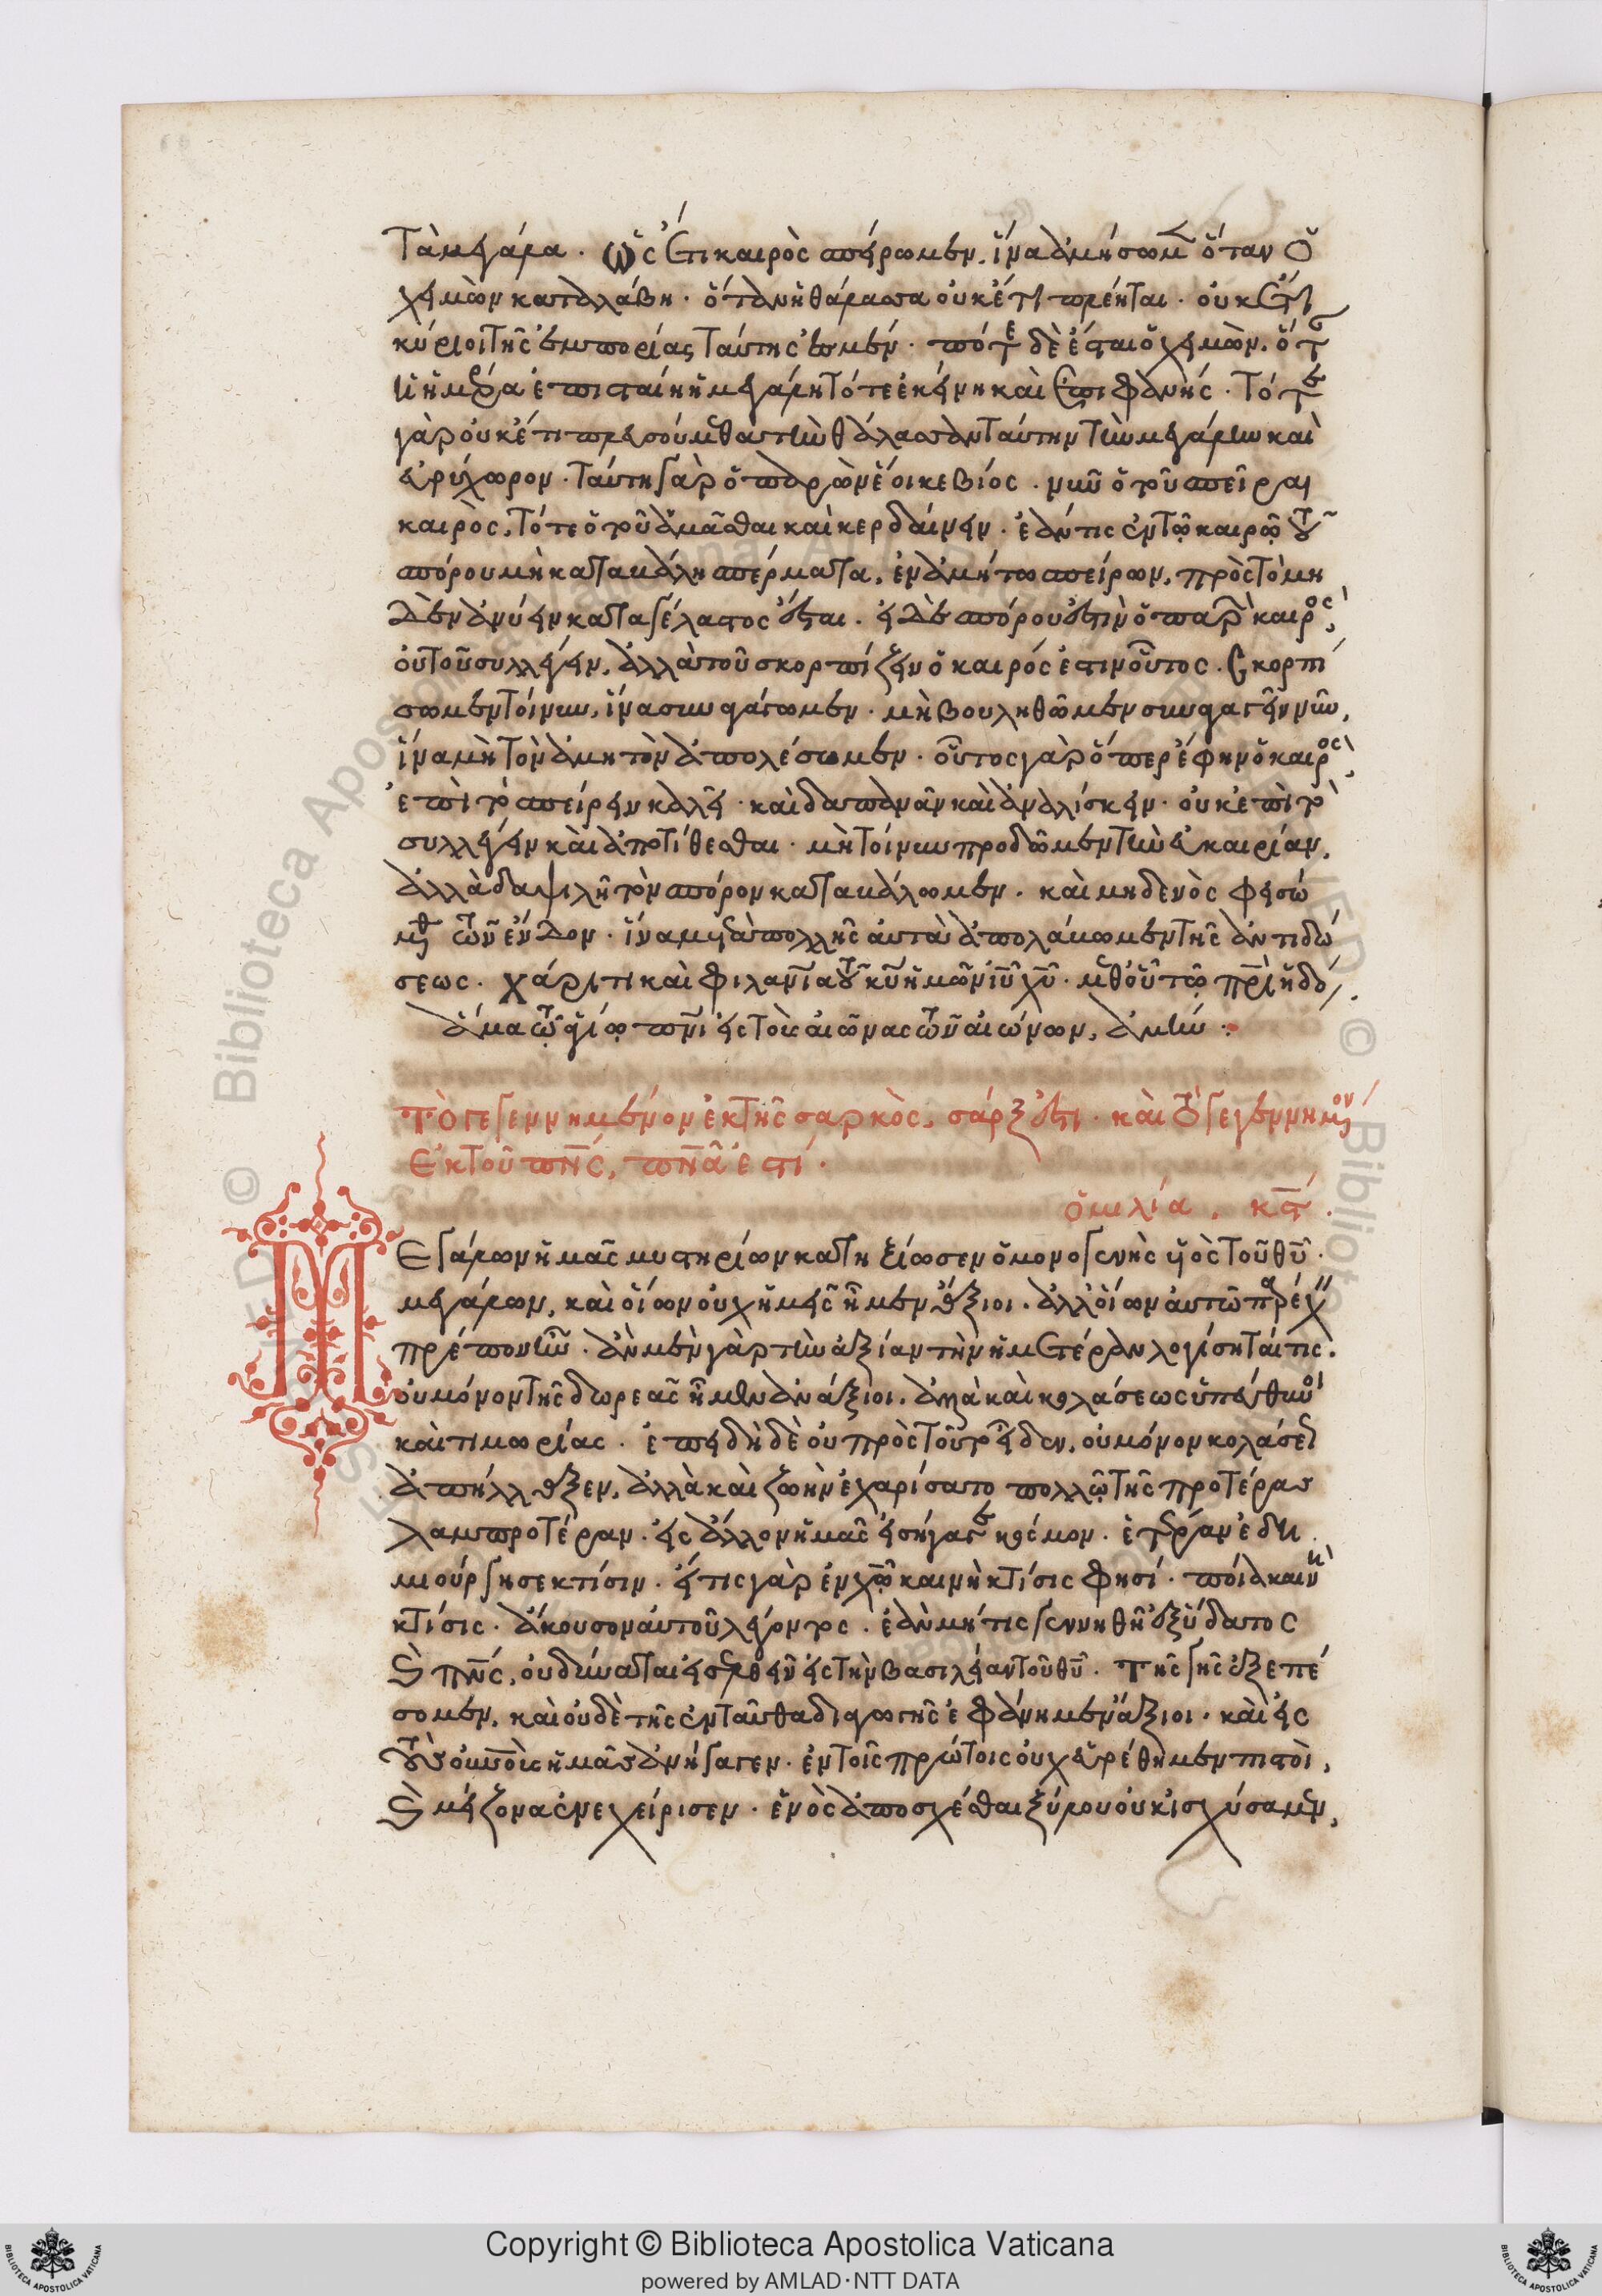 τὰ μεγάλα. ὡς ἔστι καιρὸς σπείρωμεν, ἵνα ἀμήσωμεν ὅταν ὁ
χειμὼν καταλάβη. ὅταν ἡ θάλασσα οὐκέτι πλέηται. οὐκέτι
κύριοι τῆς ἐμπορίας ταύτης ἐσμέν. πότε δὲ ἔσται ὁ χειμὼν, ὅτε
ἡ ἡμέρα ἐπισταίη ἡ μεγάλη τότε ἐκείνη καὶ ἐπιφανής. τότε
γὰρ οὐκέτι πλευσούμεθα τὴν θάλασσαν ταύτην τὴν μεγάλην καὶ
εὐρύχωρον. ταύτη γὰρ ὁ παρὼν ἔοικε βίος. νῦν ὁ τοῦ σπεῖραι
καιρὸς, τότε ὁ τοῦ ἀμᾶσθαι καὶ κερδαίνειν. ἐάν τις ἐν τῷ καιρῷ τοῦ
σπόρου μὴ καταβάλη σπέρματα, ἐν ἀμήτω σπείρων, πρὸς τὸ μη
δὲν ἀνύειν καταγέλαστος ἔσται. εἰ δὲ σπόρου ἐστὶν ὁ παρὼν καιρὸς,
οὐ τοῦ συλλέγειν, ἀλλὰ τοῦ σκορπίζειν ὁ καιρός ἐστιν οὗτος. σκορπί
σωμεν τοίνυν, ἵνα συναγάγωμεν. μὴ βουληθῶμεν συναγαγεῖν νῦν,
ἵνα μὴ τὸν ἀμητὸν ἀπολέσωμεν. οὗτος γὰρ ὅπερ ἔφην ὁ καιρὸς,
ἐπὶ τὸ σπείρειν καλεῖ. καὶ δαπανᾶν καὶ ἀναλίσκειν. οὐκ ἐπὶ τὸ
συλλέγειν καὶ ἀποτίθεσθαι. μὴ τοίνυν προδῶμεν τὴν εὐκαιρίαν,
ἀλλὰ δαψιλῆ τὸν σπόρον καταβάλωμεν. καὶ μηδενὸς φεισώ
μεθα τῶν ἔνδον. ἵνα μετὰ πολλῆς αὐτὰ ἀπολάβωμεν τῆς ἀντιδό
σεως. χάριτι καὶ φιλανία τοῦ κυ ἡμῶν ιυ χυ. μεθ' οὗ τῷ πρὶ ἡ δό/.
ἅμα τῷ ἁγίω πνι εἰς τοὺς αἰῶνας τῶν αἰώνων, ἀμήν.
Τὸ γεγεννημένον ἐκ τῆς σαρκὸς, σάρξ ἐστι. καὶ τὸ γεγεννημένον
ἐκ τοῦ πνς, πνα ἐστί.
ὁμιλία. κϛ.
Μεγάλων ἡμᾶς μυστηρίων κατηξίωσεν ὁ μονογενὴς υἱὸς τοῦ θυ.
μεγάλων, καὶ οἵων οὐχ ἡμεῖς ἦμεν ἄξιοι. ἀλλ' οἵων αὐτῶ παρέχειν
πρέπον ἦν. ἂν μὲν γὰρ τὴν ἀξίαν τὴν ἡμετέραν λογίσηταί τις.
οὐ μόνον τῆς δωρεᾶς ἦμεν ἀνάξιοι. ἀλλὰ καὶ κολάσεως ὑπεύθυνοι
καὶ τιμωρίας. ἐπειδὴ δὲ οὐ πρὸς τοῦτο εἶδεν, οὐ μόνον κολάσεως
ἀπήλλαξεν, ἀλλὰ καὶ ζωὴν ἐχαρίσατο πολλῷ τῆς προτέρας
λαμπροτέραν. εἰς ἄλλον ἡμᾶς εἰσήγαγε κόσμον. ἑτέραν ἐδη
μιούργησε κτίσιν. εἴ τις γὰρ ἐν χῷ καινὴ κτίσις φησί. ποία καινὴ
κτίσις. ἄκουσον αὐτοῦ λέγοντος. ἐὰν μή τις γεννηθῆ ἐξ ὕδατος
καὶ πνς, οὐ δύναται εἰσελθεῖν εἰς τὴν βασιλείαν τοῦ θυ. τῆς γῆς ἐξεπέ
σομεν, καὶ οὐδὲ τῆς ἐνταῦθα διαγωγῆς ἐφάνημεν ἄξιοι. καὶ εἰς
τοὺς οὐνοὺς ἡμᾶς ἀνήγαγεν. ἐν τοῖς πρώτοις οὐχ εὑρέθημεν πιστοὶ,
καὶ μείζονα ἐνεχείρισεν. ἑνὸς ἀποσχέσθαι ξύλου οὐκ ἰσχύσαμεν,